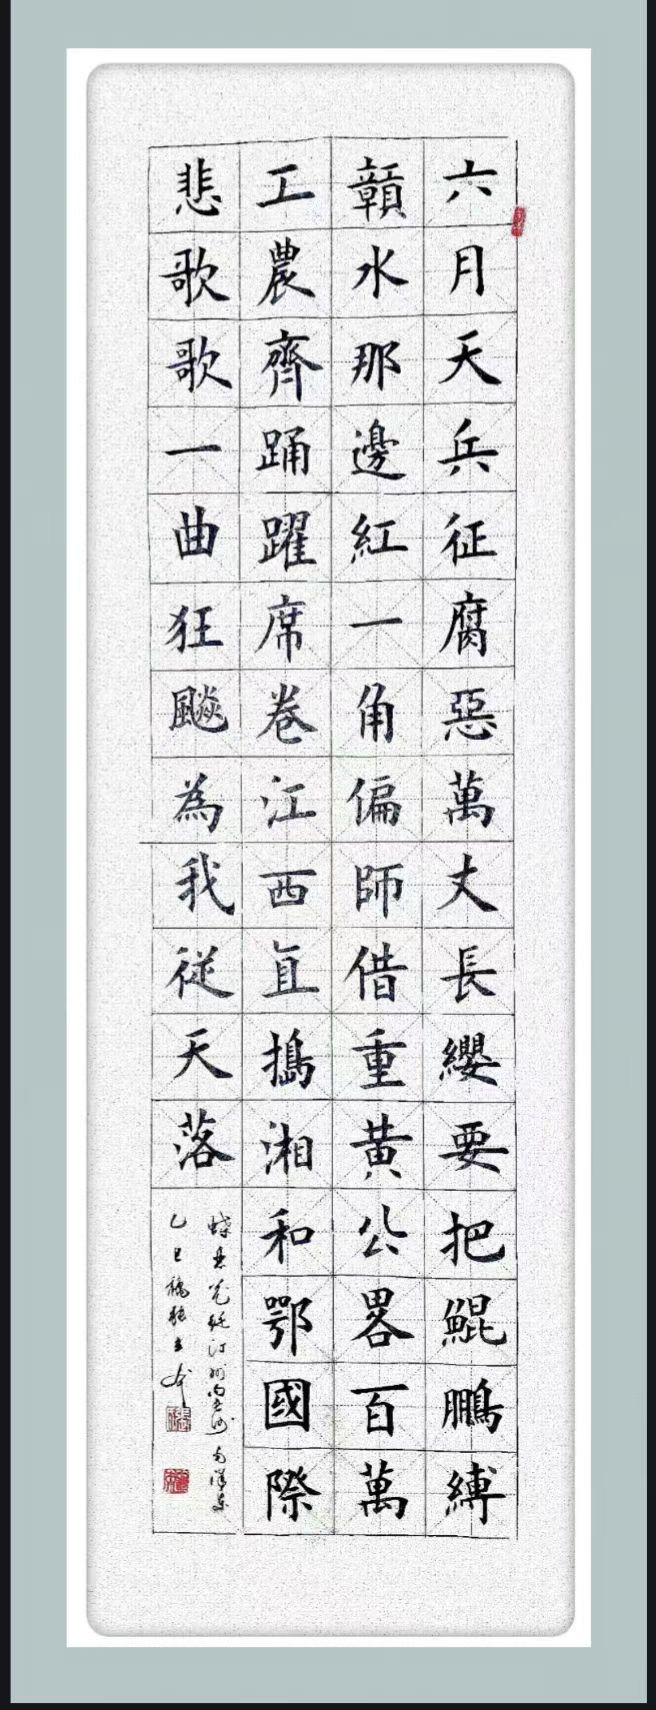 六月天兵征腐惡萬丈長纓要把鯤鵬縛
贛水那邊紅一角偏師借重黃公畧百萬
工農齊踴躍席卷江西直搗湘和鄂國際
悲歌歌一曲狂飈為我從天落
蝶恋花從汀州向長沙 毛澤東
乙巳